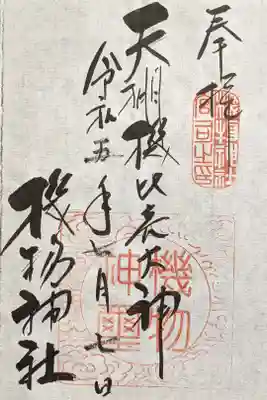 奉拝
天棚機比売大神
令和五年七月七日
機物神社
機物
神璽